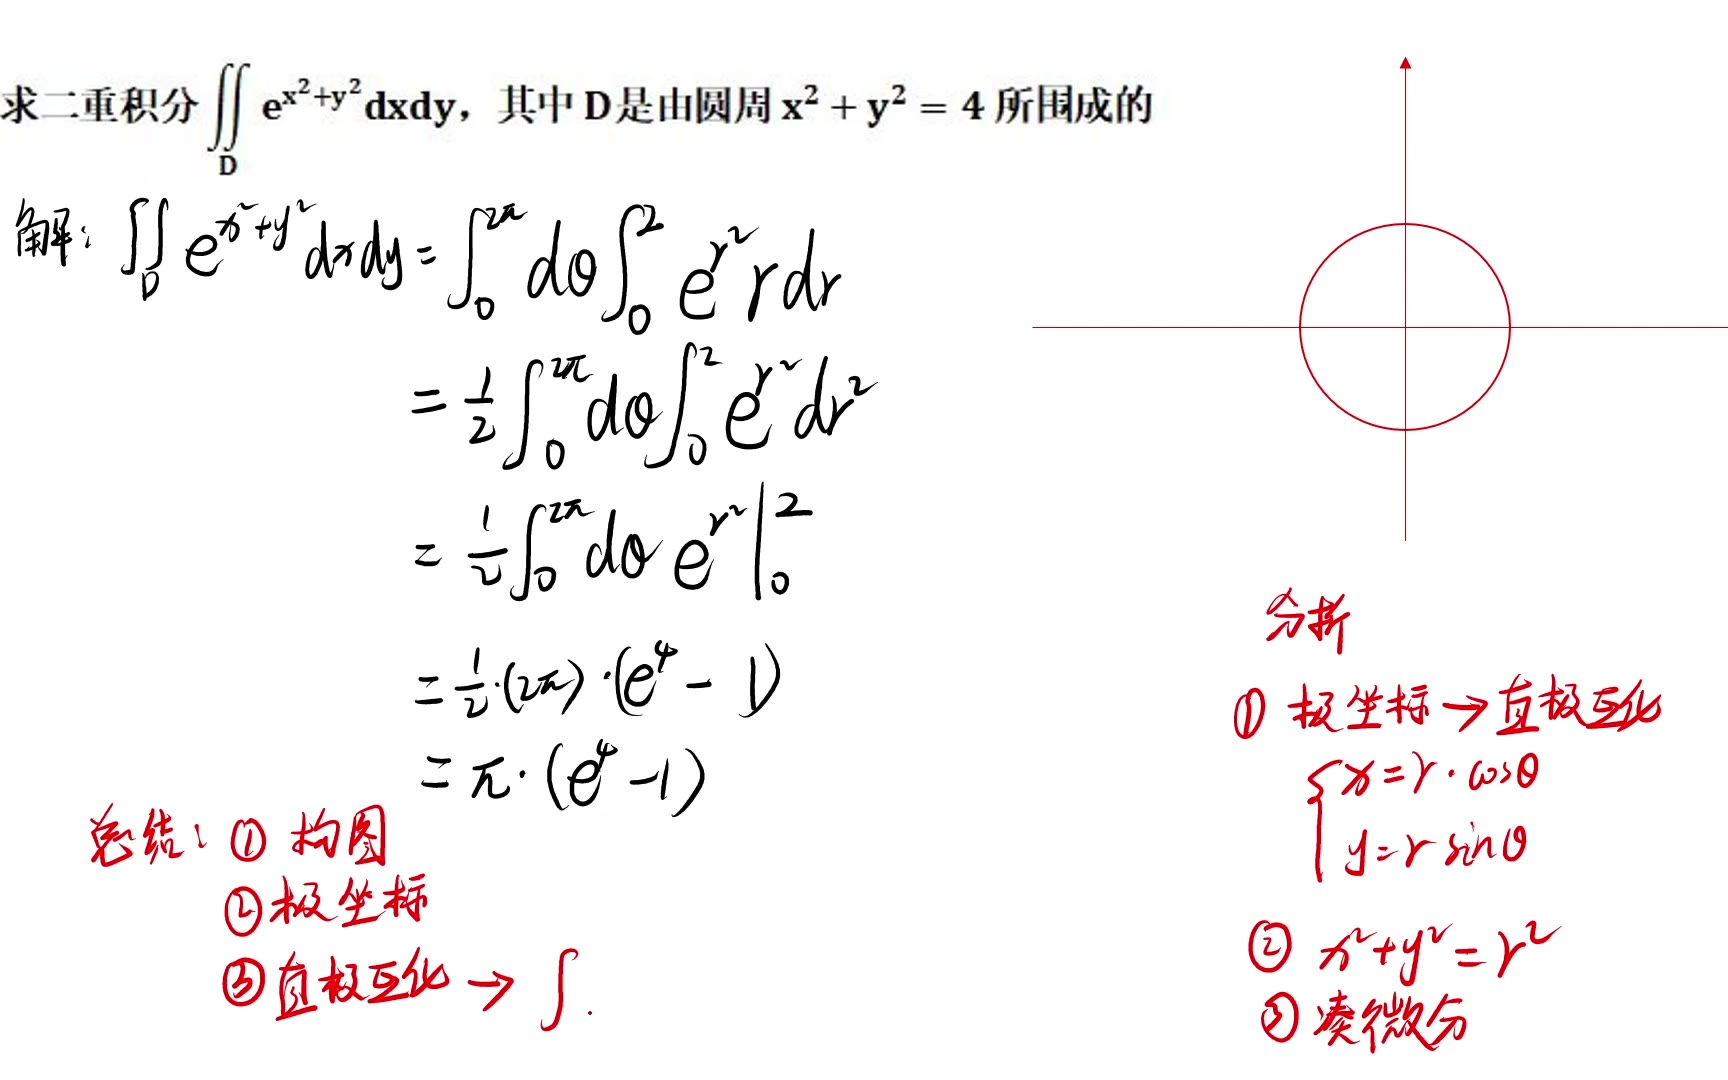 求二重积分∬_D e^{x²+y²}dxdy，其中 D 是由圆周 x² + y² = 4 所围成的
解: ∬_D e^{x²+y²} dxdy = ∫_0^{2π} dθ ∫_0^2 e^{r²} r dr
= 1/2 ∫_0^{2π} dθ ∫_0^2 e^{r²} dr²
= 1/2 ∫_0^{2π} dθ e^{r²} |_0^2
= 1/2 · (2π) · (e⁴ - 1)
= π · (e⁴ - 1)
总结: ① 构图
② 极坐标
③ 直极互化 → ∫.
分析
① 极坐标 → 直极互化
{ x = r · cosθ
y = r sinθ
② x² + y² = r²
③ 凑微分